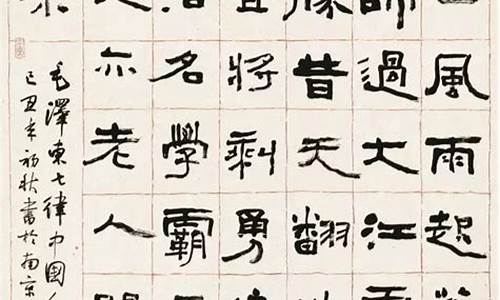 風雨起
師過大江
勝昔天翻
宜將剩勇
沽名學霸
亦老人間
毛澤東七律中國人
己丑年初秋書於南京